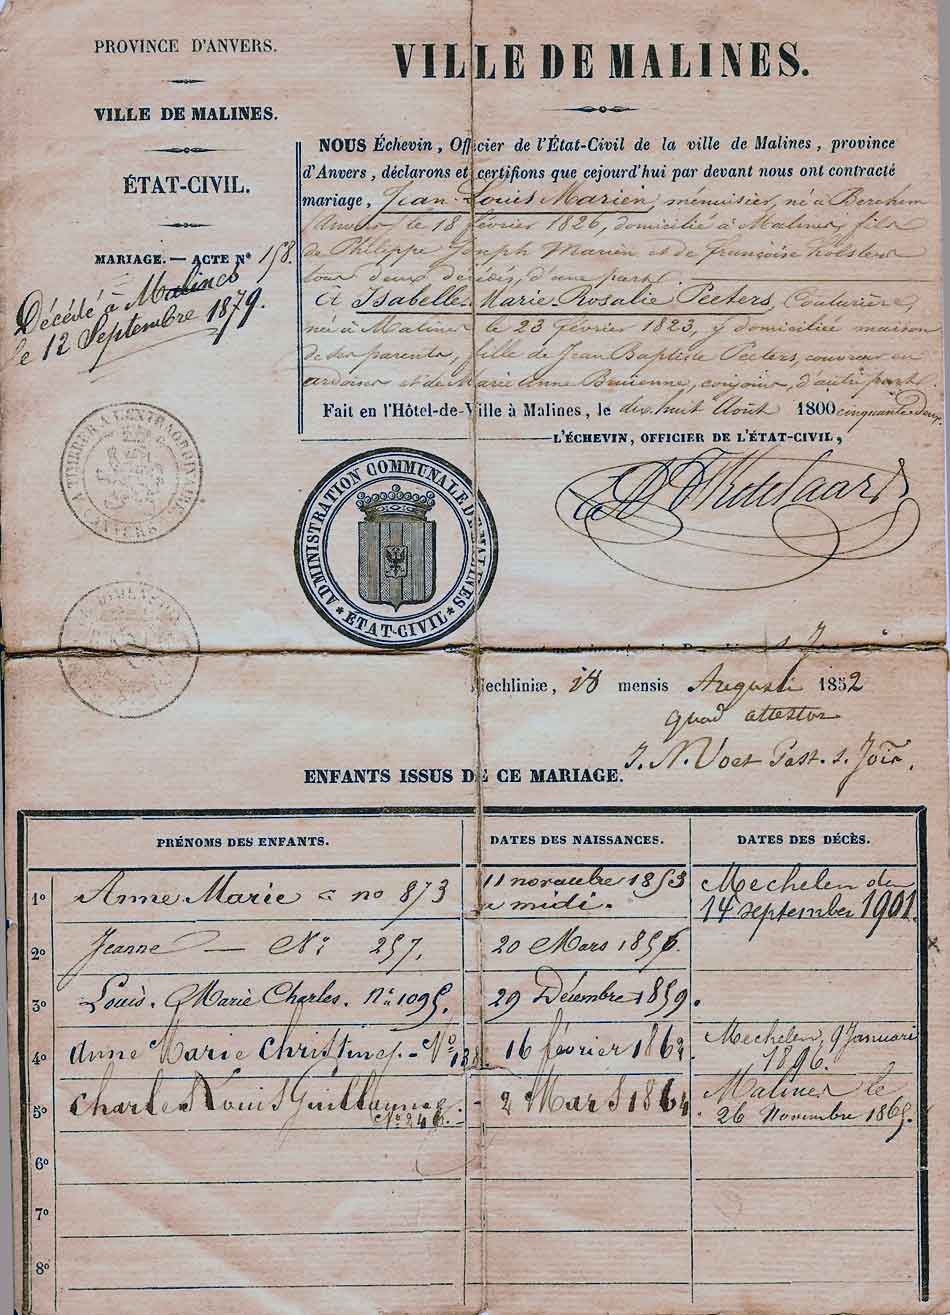 PROVINCE D'ANVERS.
VILLE DE MALINES.
ÉTAT-CIVIL.
MARIAGE. — ACTE Nº 158.
Décédé à Malines
le 12 Septembre 1879.
VILLE DE MALINES.
NOUS Échevin, Officier de l'État-Civil de la ville de Malines, province
d'Anvers, déclarons et certifions que cejourd'hui par devant nous ont contracté
mariage, Jean Louis Marien, menuisier, né à Berchem
(Anvers) le 18 février 1826, domicilié à Malines, fils
de Philippe Joseph Marien et de Françoise
tous deux décédés, d'une part
Et Isabelle Marie Rosalie Peeters, Couturière,
née à Malines le 23 février 1823, y domiciliée maison
de ses parents, fille de Jean Baptiste Peeters, couvreur en
ardoises et de Marie Anne conjoints, d'autre part.
Fait en l'Hôtel-de-Ville à Malines, le dix huit Août 1800 cinquante deux.
L'ÉCHEVIN, OFFICIER DE L'ÉTAT-CIVIL,
A TIMBRER A L'EXTRAORDINAIRE
ANVERS
ADMINISTRATION COMMUNALE DE MALINES
* ÉTAT-CIVIL *
Mechliniæ, 18 mensis Augusti 1852
quod attestor
J. N. Voet Past. s.
ENFANTS ISSUS DE CE MARIAGE.
PRÉNOMS DES ENFANTS. DATES DES NAISSANCES. DATES DES DÉCÈS.
1º Anne Marie no 873 11 novembre 1853 a midi. Mechelen den 14 september 1901.
2º Jeanne — Nº 257. 20 Mars 1856.
3º Louis. Marie Charles. Nº 1095. 29 Décembre 1859.
4º Anne Marie Christine - Nº 138. 16 février 1862 Mechelen, 9 Januari 1896.
5º Charles Louis Guillaume Nº 246. 2 Mars 1864 Malines le 26 Novembre 1865.
6º
7º
8º